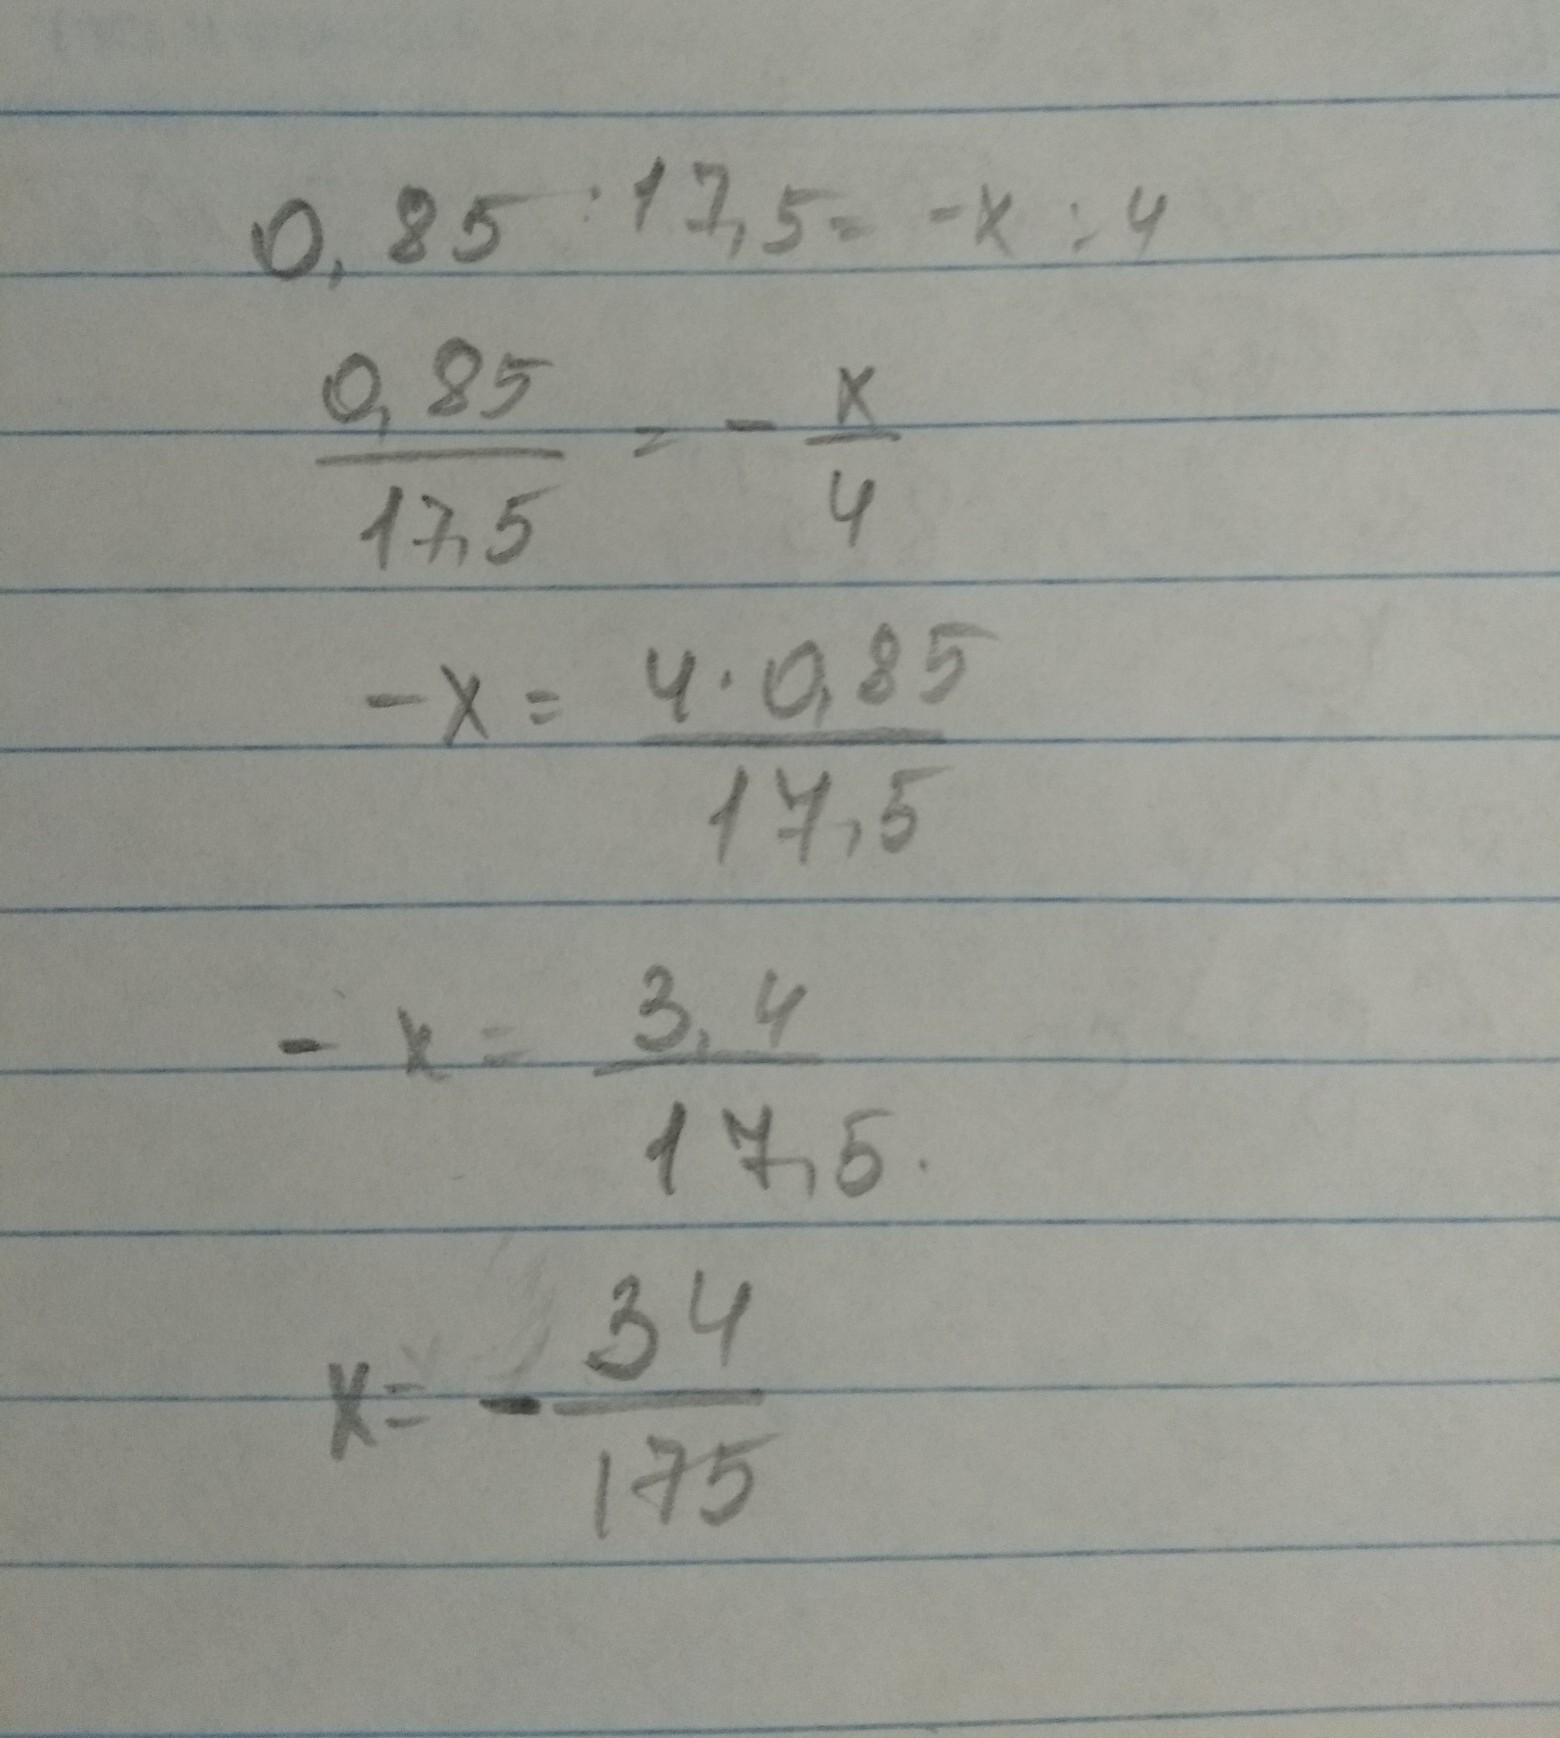 0,85 : 17,5 = -x : 4
0,85/17,5 = - x/4
-x = 4 · 0,85/17,5
- x = 3,4/17,5.
x = - 34/175